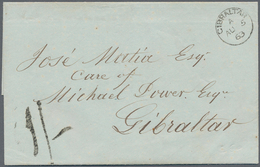 GIBRALTAR
A
AU 5
63
José Martia Esqr
Care of
Michael Power Esqr
Gibraltar
1/-